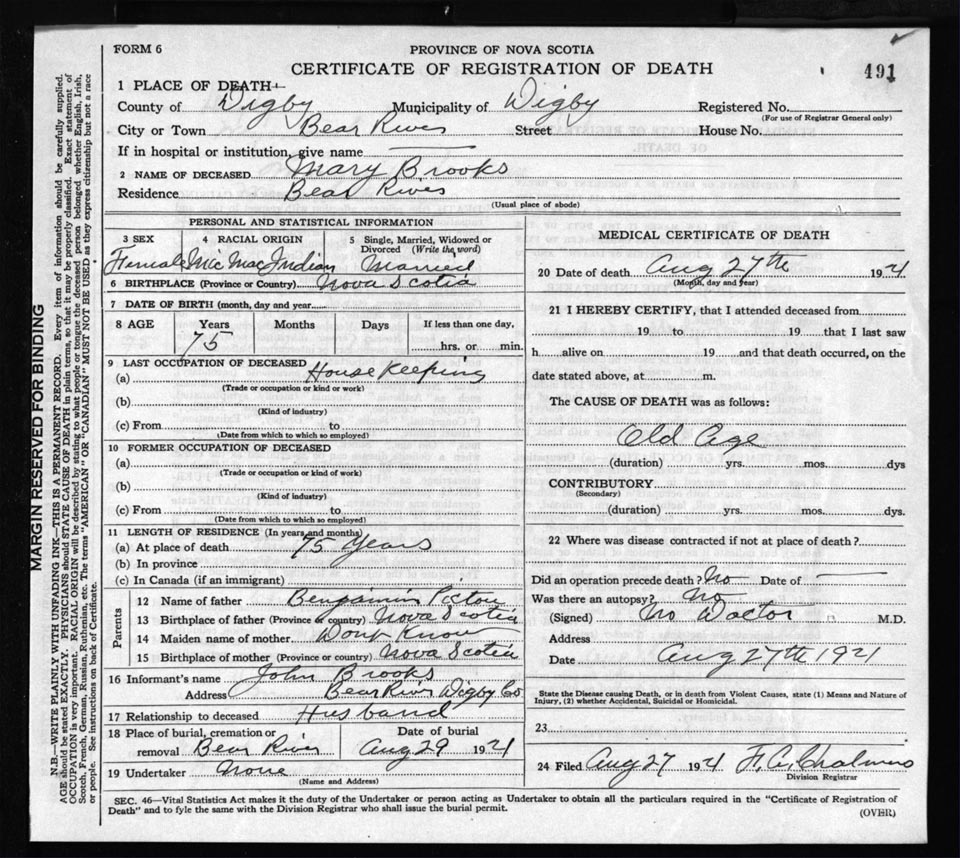 FORM 6
PROVINCE OF NOVA SCOTIA
CERTIFICATE OF REGISTRATION OF DEATH
491
1 PLACE OF DEATH
County of Digby Municipality of Digby Registered No.
(For use of Registrar General only)
City or Town Bear River Street House No.
If in hospital or institution, give name
2 NAME OF DECEASED Mary Brooks
Residence Bear River
(Usual place of abode)
PERSONAL AND STATISTICAL INFORMATION
3 SEX 4 RACIAL ORIGIN 5 Single, Married, Widowed or
Divorced (Write the word)
Female Mic Mac Indian Married
6 BIRTHPLACE (Province or Country) Nova Scotia
7 DATE OF BIRTH (month, day and year)
8 AGE Years Months Days If less than one day,
75 hrs. or min.
9 LAST OCCUPATION OF DECEASED
(a) House Keeping
(Trade or occupation or kind or work)
(b)
(Kind of industry)
(c) From to
(Date from which to which so employed)
10 FORMER OCCUPATION OF DECEASED
(a)
(Trade or occupation or kind of work)
(b)
(Kind of industry)
(c) From to
(Date from which to which so employed)
11 LENGTH OF RESIDENCE (In years and months)
(a) At place of death 75 years
(b) In province
(c) In Canada (if an immigrant)
Parents
12 Name of father Benjamin Pictou
13 Birthplace of father (Province or country) Nova Scotia
14 Maiden name of mother Dont Know
15 Birthplace of mother (Province or country) Nova Scotia
16 Informant's name John Brooks
Address Bear River Digby Co
17 Relationship to deceased Husband
18 Place of burial, cremation or Date of burial
removal Bear River Aug 29 1921
19 Undertaker None
(Name and Address)
MEDICAL CERTIFICATE OF DEATH
20 Date of death Aug 27th 1921
(Month, day and year)
21 I HEREBY CERTIFY, that I attended deceased from
19 to 19 that I last saw
h alive on 19 and that death occurred, on the
date stated above, at m.
The CAUSE OF DEATH was as follows:
Old Age
(duration) yrs. mos. dys
CONTRIBUTORY
(Secondary)
(duration) yrs. mos. dys.
22 Where was disease contracted if not at place of death?
Did an operation precede death? No Date of
Was there an autopsy? No
(Signed) No Doctor M.D.
Address
Date Aug 27th 1921
State the Disease causing Death, or in death from Violent Causes, state (1) Means and Nature of
Injury, (2) whether Accidental, Suicidal or Homicidal.
23
24 Filed Aug 27 1921
Division Registrar
SEC. 46—Vital Statistics Act makes it the duty of the Undertaker or person acting as Undertaker to obtain all the particulars required in the "Certificate of Registration of
Death" and to fyle the same with the Division Registrar who shall issue the burial permit.
(OVER)
MARGIN RESERVED FOR BINDING
N.B.—WRITE PLAINLY WITH UNFADING INK—THIS IS A PERMANENT RECORD. Every item of information should be carefully supplied.
AGE should be stated EXACTLY. PHYSICIANS should STATE CAUSE OF DEATH in plain terms, so that it may be properly classified. Exact statement of
OCCUPATION is very important. RACIAL ORIGIN will be described by stating to what people or tongue the deceased person belonged whether English, Irish,
Scotch, French, German, Russian, Ruthenian, etc. The terms "AMERICAN" OR "CANADIAN" MUST NOT BE USED as they express citizenship but not a race
or people. See instructions on back of Certificate.